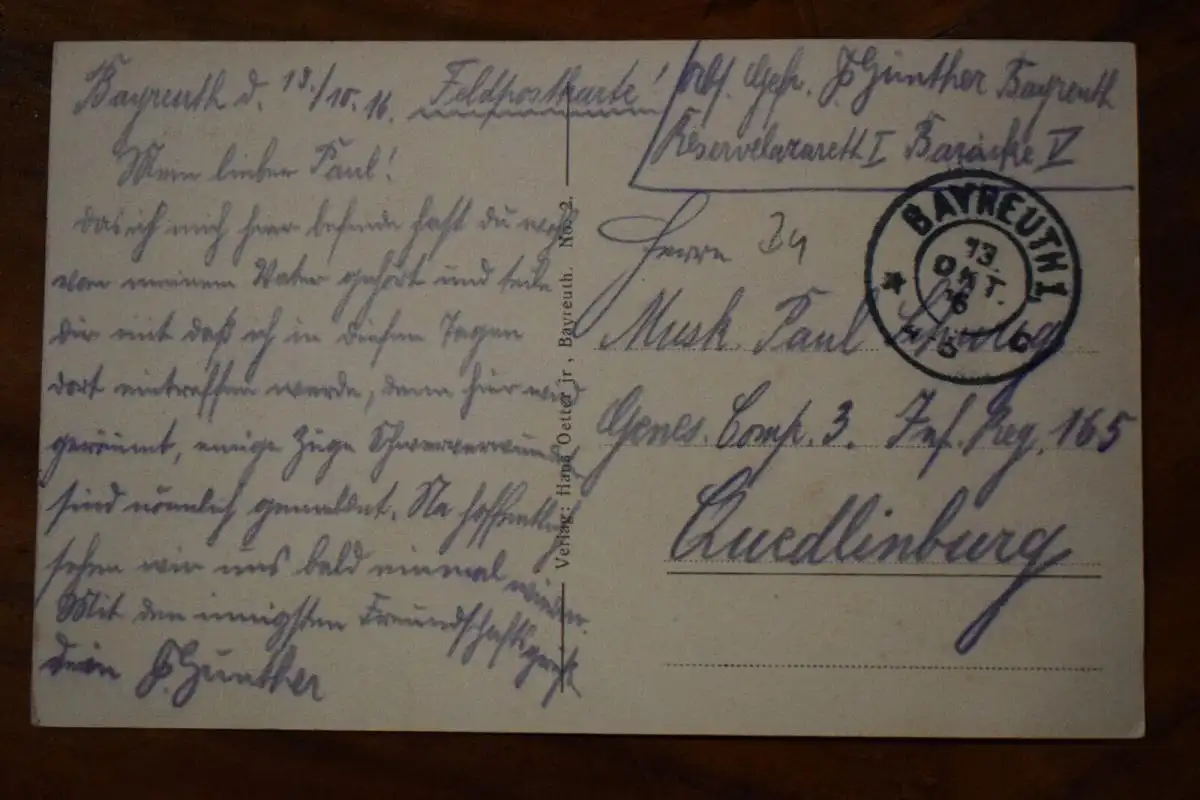 Bayreuth d. 13./10.16. Feldpostkarte!
Mein lieber Paul!
Das ich mich hier befinde hast du wohl
von meinem Vater gehört und teile
dir mit daß ich in diesen Tagen
dort eintreffen werde, denn hier wird
geräumt, einige Züge Schwerverwundete
sind nämlich gemeldet. Na hoffentlich
sehen wir uns bald einmal wieder.
Mit den innigsten Freundschaftsgruß
dein F. Günther
Verlag: Hans Oetter jr., Bayreuth. No. 2.
Abs. Gefr. F. Günther Bayreuth
Reservelazareth I Baracke V
BAYREUTH I
13.
OKT.
16
Herrn
Musk. Paul
Genes. Comp. 3. Inf. Reg. 165
Quedlinburg